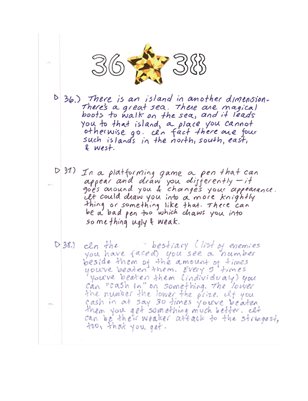 36 38
36.) There is an island in another dimension-
There's a great sea. There are magical
boots to walk on the sea, and it leads
you to that island, a place you cannot
otherwise go. In fact there are four
such islands in the north, south, east,
& west.
37.) In a platforming game a pen that can
appear and draw you differently - it
goes around you & changes your appearance.
It could draw you into a more knightly
thing or something like that. There can
be a bad pen too which draws you into
something ugly & weak.
38.) In the bestiary (list of enemies
you have faced) you see a number
beside them of the amount of times
you've beaten them. Every 5 times
you've beaten them (individually) you
can "cash in" on something. The lower
the number the lower the prize. If you
cash in at say 30 times you've beaten
them you get something much better. It
can be their weaker attack to the strongest,
too, that you get.